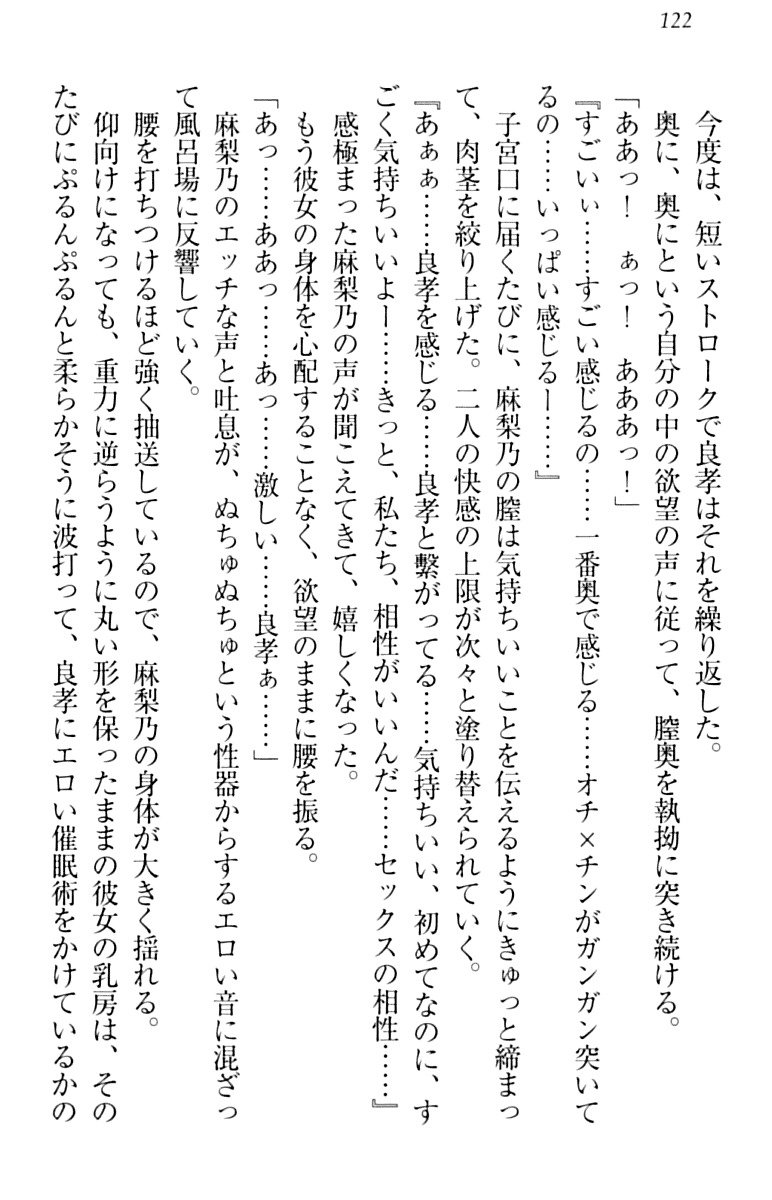 122
今度は、短いストロークで良孝はそれを繰り返した。
奥に、奥にという自分の中の欲望の声に従って、膣奥を執拗に突き続ける。
「ああっ！　ぁっ！　あああっ！」
『すごいぃ……すごい感じるの……一番奥で感じる……オチ×チンがガンガン突いて
るの……いっぱい感じるー……』
子宮口に届くたびに、麻梨乃の膣は気持ちいいことを伝えるようにきゅっと締まっ
て、肉茎を絞り上げた。二人の快感の上限が次々と塗り替えられていく。
『あぁぁ……良孝を感じる……良孝と繋がってる……気持ちいい、初めてなのに、す
ごく気持ちいいよー……きっと、私たち、相性がいいんだ……セックスの相性……』
感極まった麻梨乃の声が聞こえてきて、嬉しくなった。
もう彼女の身体を心配することなく、欲望のままに腰を振る。
「あっ……ああっ……あっ……激しい……良孝ぁ……」
麻梨乃のエッチな声と吐息が、ぬちゅぬちゅという性器からするエロい音に混ざっ
て風呂場に反響していく。
腰を打ちつけるほど強く抽送しているので、麻梨乃の身体が大きく揺れる。
仰向けになっても、重力に逆らうように丸い形を保ったままの彼女の乳房は、その
たびにぷるんぷるんと柔らかそうに波打って、良孝にエロい催眠術をかけているかの